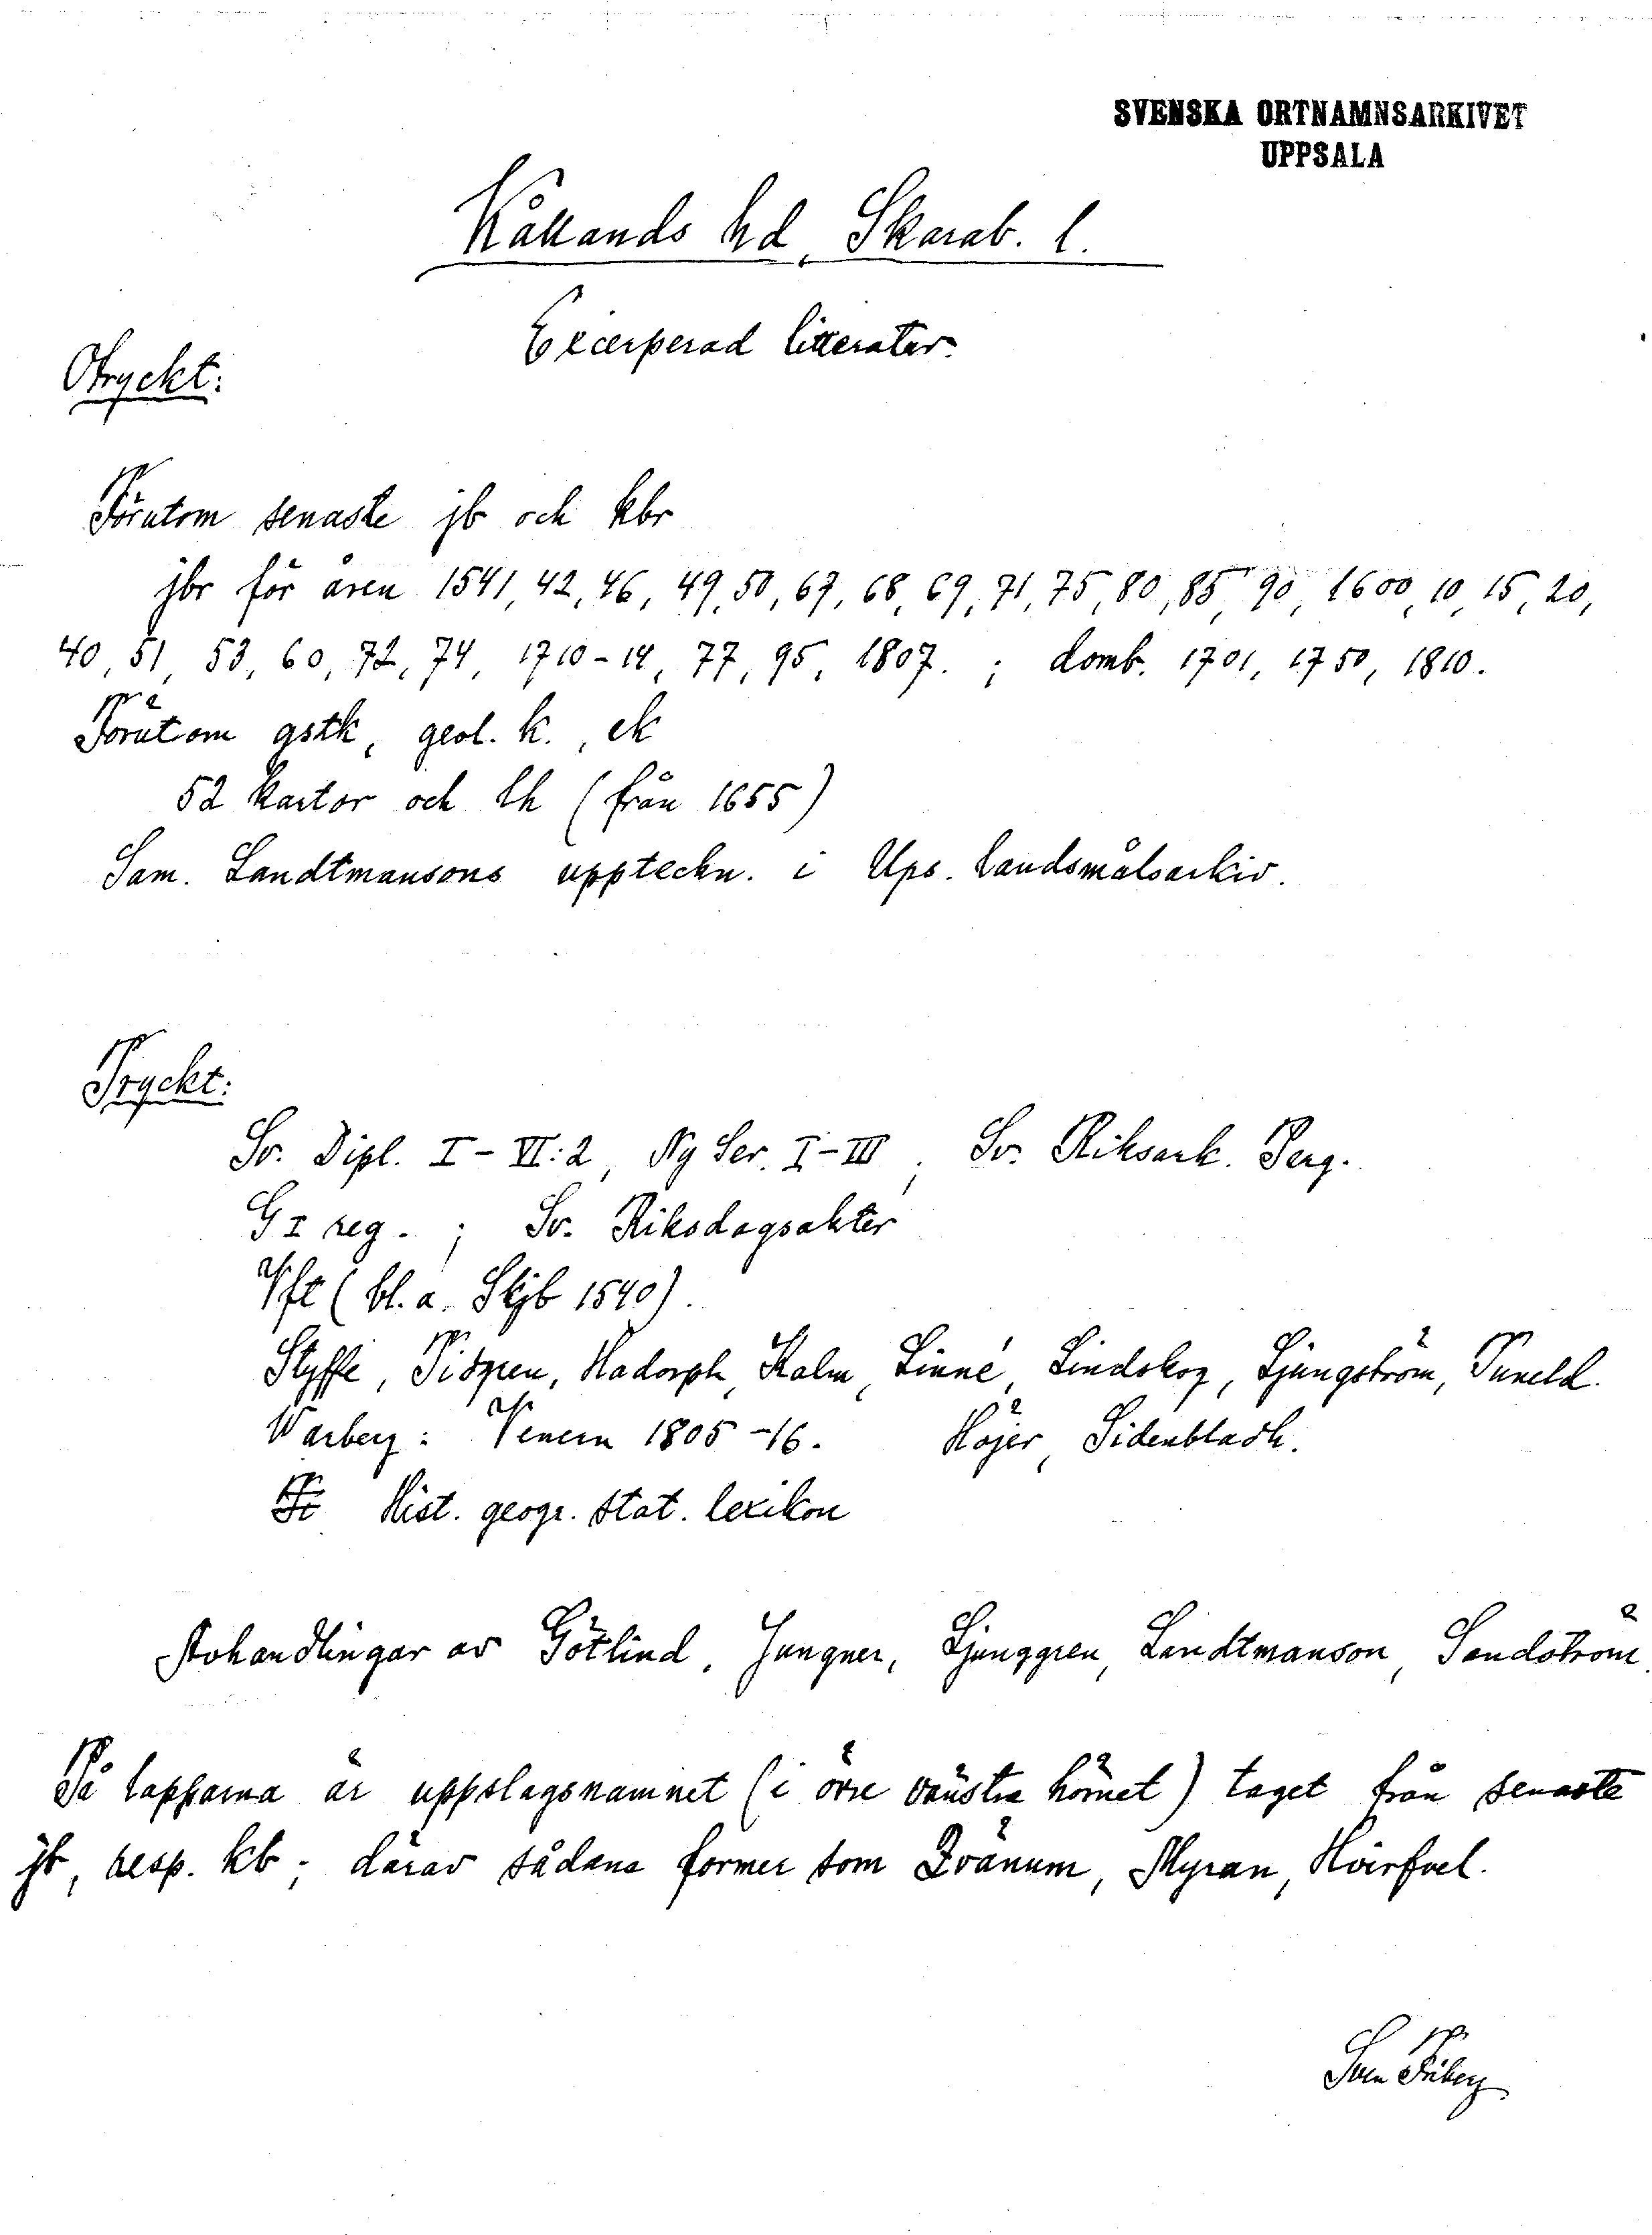 SVENSKA ORTNAMNSARKIVET
UPPSALA
Kållands hd, Skarab. l.
Excerperad litteratur.
Otryckt:
Förutom senaste jb och kbr
jbr för åren 1541, 42, 46, 49, 50, 67, 68, 69, 71, 75, 80, 85, 90, 1600, 10, 15, 20,
40, 51, 53, 60, 72, 74, 1710-14, 77, 95, 1807. ; domb. 1701, 1750, 1810.
Förutom gstk, geol. k., ek
52 kartor och lh (från 1655)
Sam. Landtmansons uppteckn. i Ups. landsmålsarkiv.
Tryckt:
Sv. Dipl. I-VI:2, Ny Ser. I-III ; Sv. Riksark. Perg.
G I reg. ; Sv. Riksdagsakter
Vft (bl. a. Skjb 1540).
Styffe, Tidgren, Hadorph, Kalm, Linné, Lindskog, Ljungström, Tuneld.
Warberg: Venern 1805-16. Höjer, Sidenbladh.
Hist. geogr. stat. lexikon
Avhandlingar av Götlind, Jungner, Ljunggren, Landtmanson, Sandström.
På lapparna är uppslagsnamnet (i övre vänstra hörnet) taget från senaste
jb, resp. kb; därav sådana former som Qvänum, Myran, Hvirfvel.
Sven Friberg